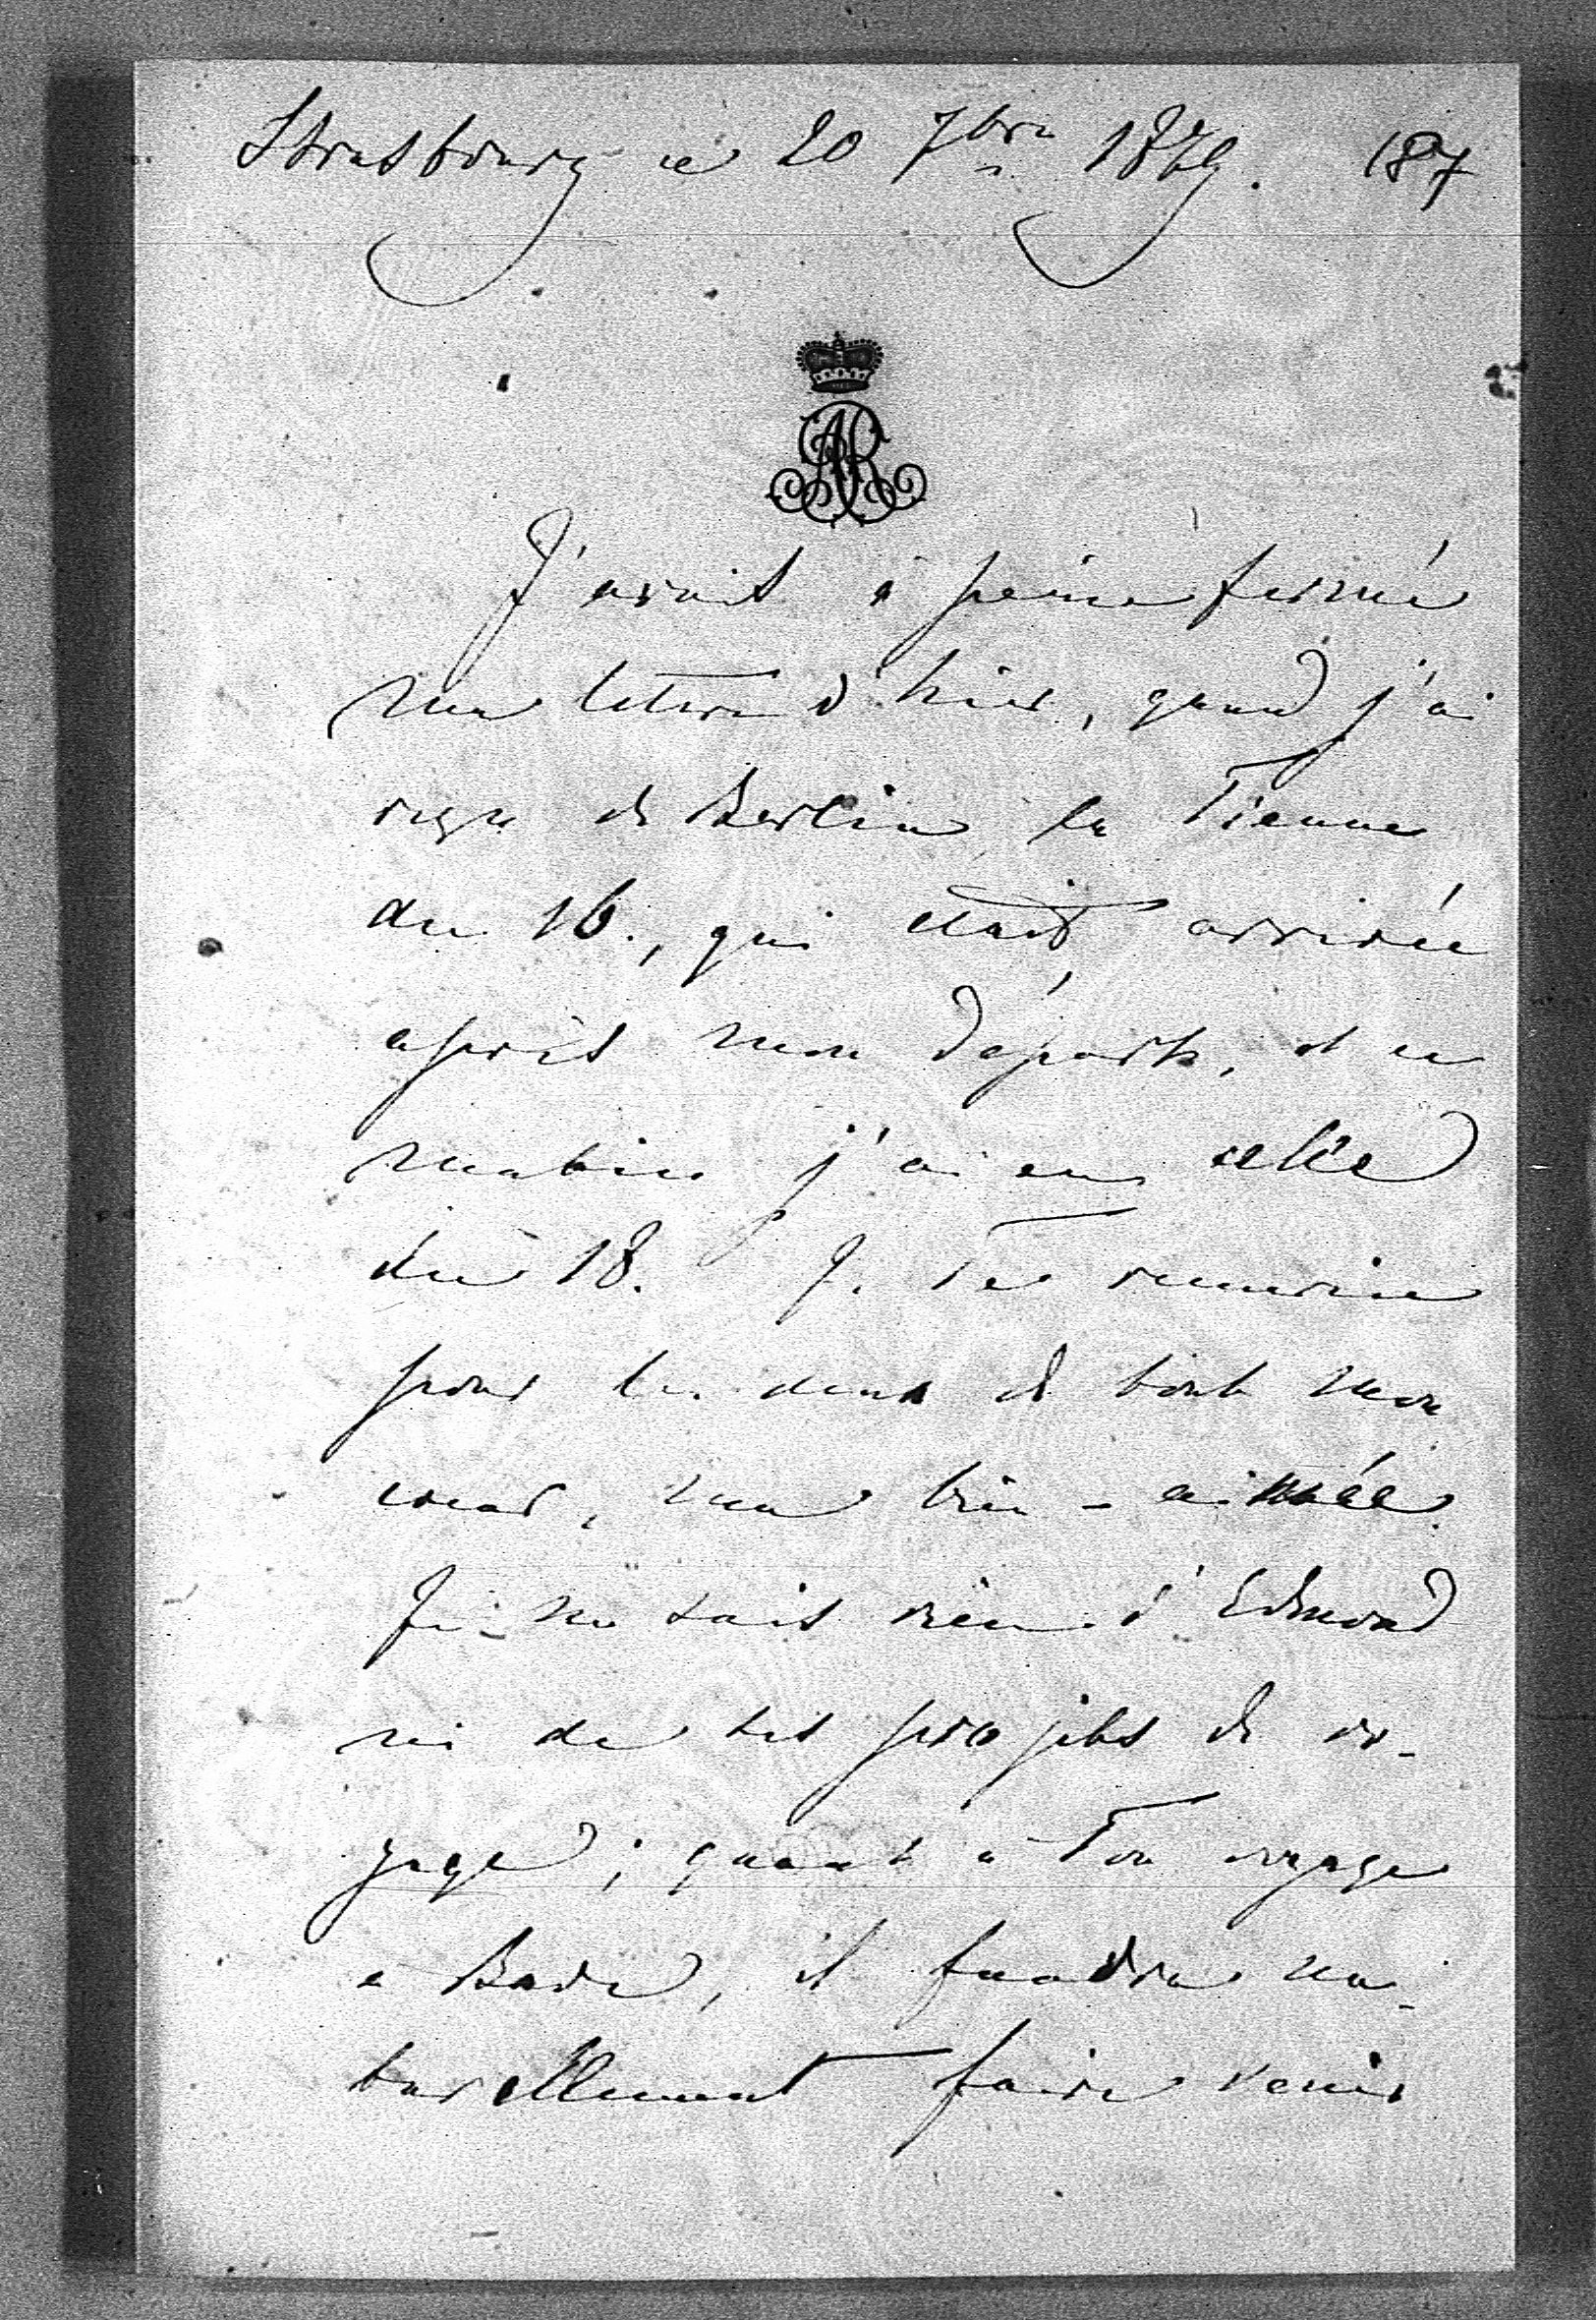 Strasbourg ce 20 7bre 1879. 187
AR
J'avais à peine fermé
ma lettre d'hier, quand j'ai
reçu de Berlin la Tienne
du 16., qui était arrivée
après mon départ, et ce
matin j'ai eu celle
du 18. Je Te remercie
pour les deux de tout mon
coeur, ma bien-aimée.
Je ne sais rien d'Edmond
ni de ses projets de vo-
yage; quant à Ton voyage
à Bade, il faudra na-
turellement faire venir